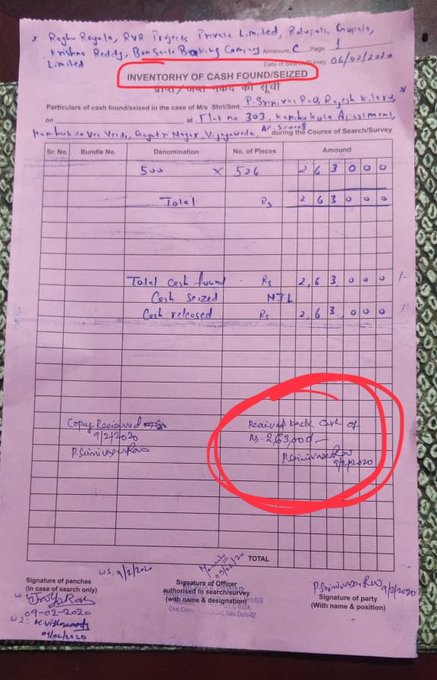 x Raghu Royala, RVR Projects Private Limited, Polupalli, Gopala,
Krishna Reddy, Bonsaile Banking Company Annexure C Page 1
Limited Date of Search/Survey 06/02/2020
INVENTORHY OF CASH FOUND/SEIZED
प्राप्त / जब्त नकद की सूची
Particulars of cash found/seized in the case of M/s Shri/Smt. P. Srinivas Rao, Rajesh
on at Flat no 303, Apartment,
Gayatri Nagar, Vijayawada, during the Course of Search/Survey
Sr. No. Bundle No. Denomination No. of Pieces Amount
500 x 526 263000
Total Rs 263000
Total cash found Rs 2,63,000 /-
Cash seized NIL
Cash released Rs 2,63,000 /-
Copy Received
9/2/2020
P. Srinivas Rao
Received back Cash of
Rs. 2,63,000/-
P. Srinivas Rao
9/2/2020
TOTAL
Signature of panchas
(in case of search only)
09-02-2020
Signature of Officer
authorised to search/survey
(with name & designation)
P. Srinivas Rao 9/2/2020
Signature of party
(With name & position)